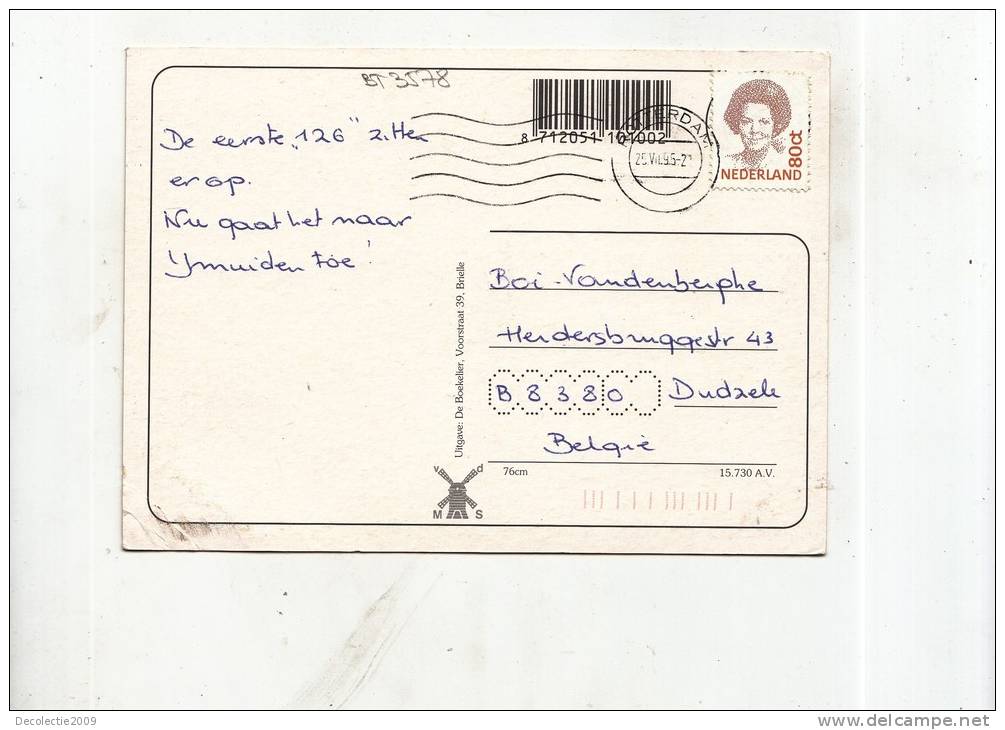 BT 3578
De eerste „126" zitten
er op.
Nu gaat het naar
Ymuiden toe!
8 712051 101002
25.VII.95-2
NEDERLAND
80ct
Uitgave: De Boekelier, Voorstraat 39, Brielle
Boi-Vandenberghe
Herdersbruggestr 43
B 8380 Dudzele
België
76cm 15.730 A.V.
v d
M S
Decolectie2009
delcampe.net